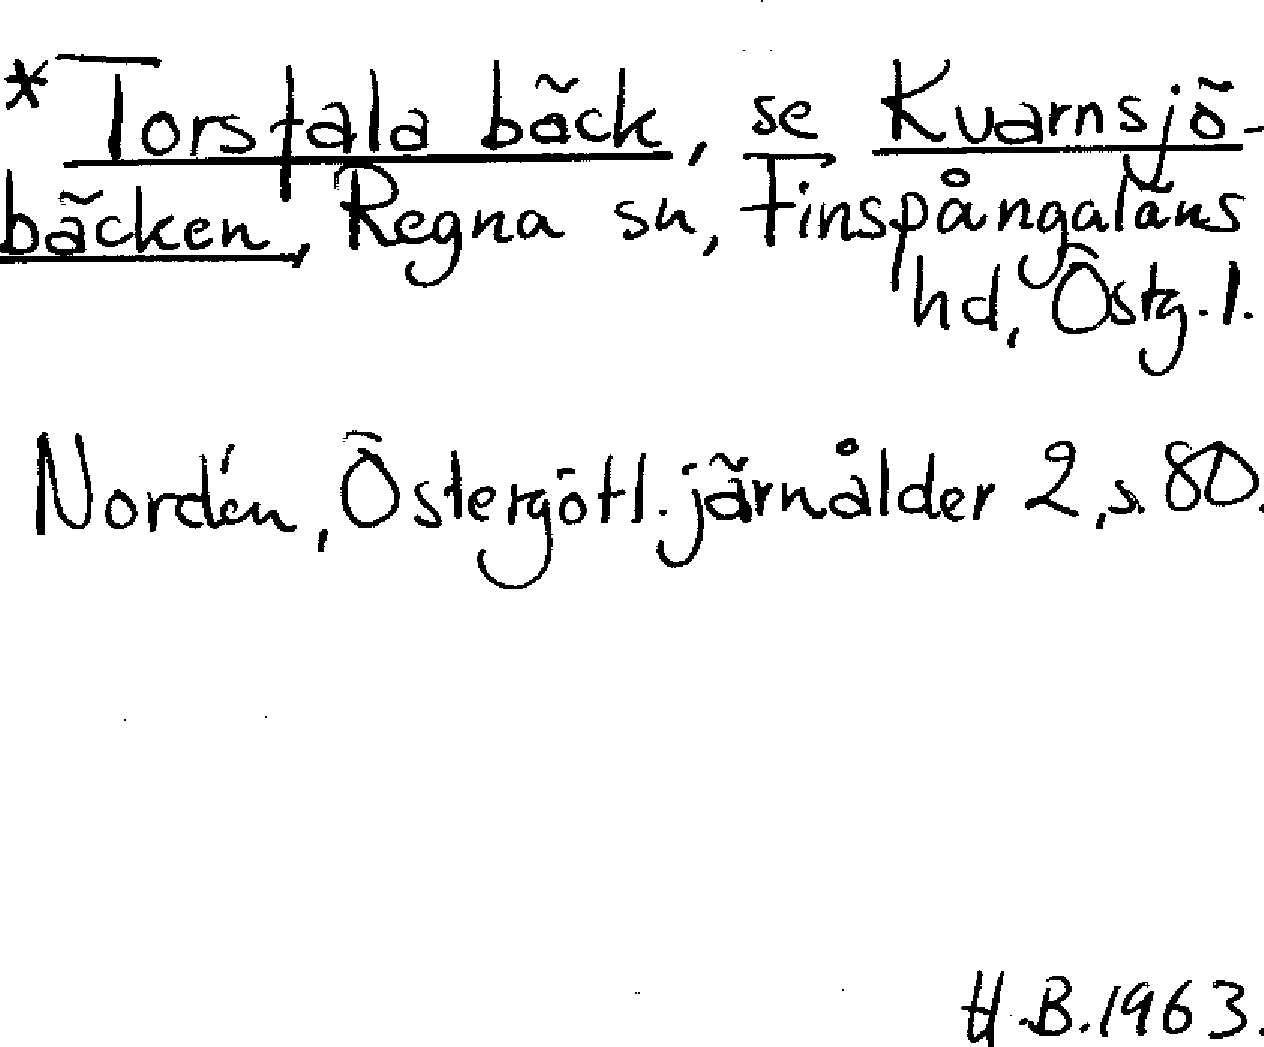 * Torstala bäck, se Kvarnsjö-
bäcken, Regna sn, Finspångaläns
hd, Östg. l.
Nordén, Östergötl. järnålder 2, s. 80.
H.B. 1963.